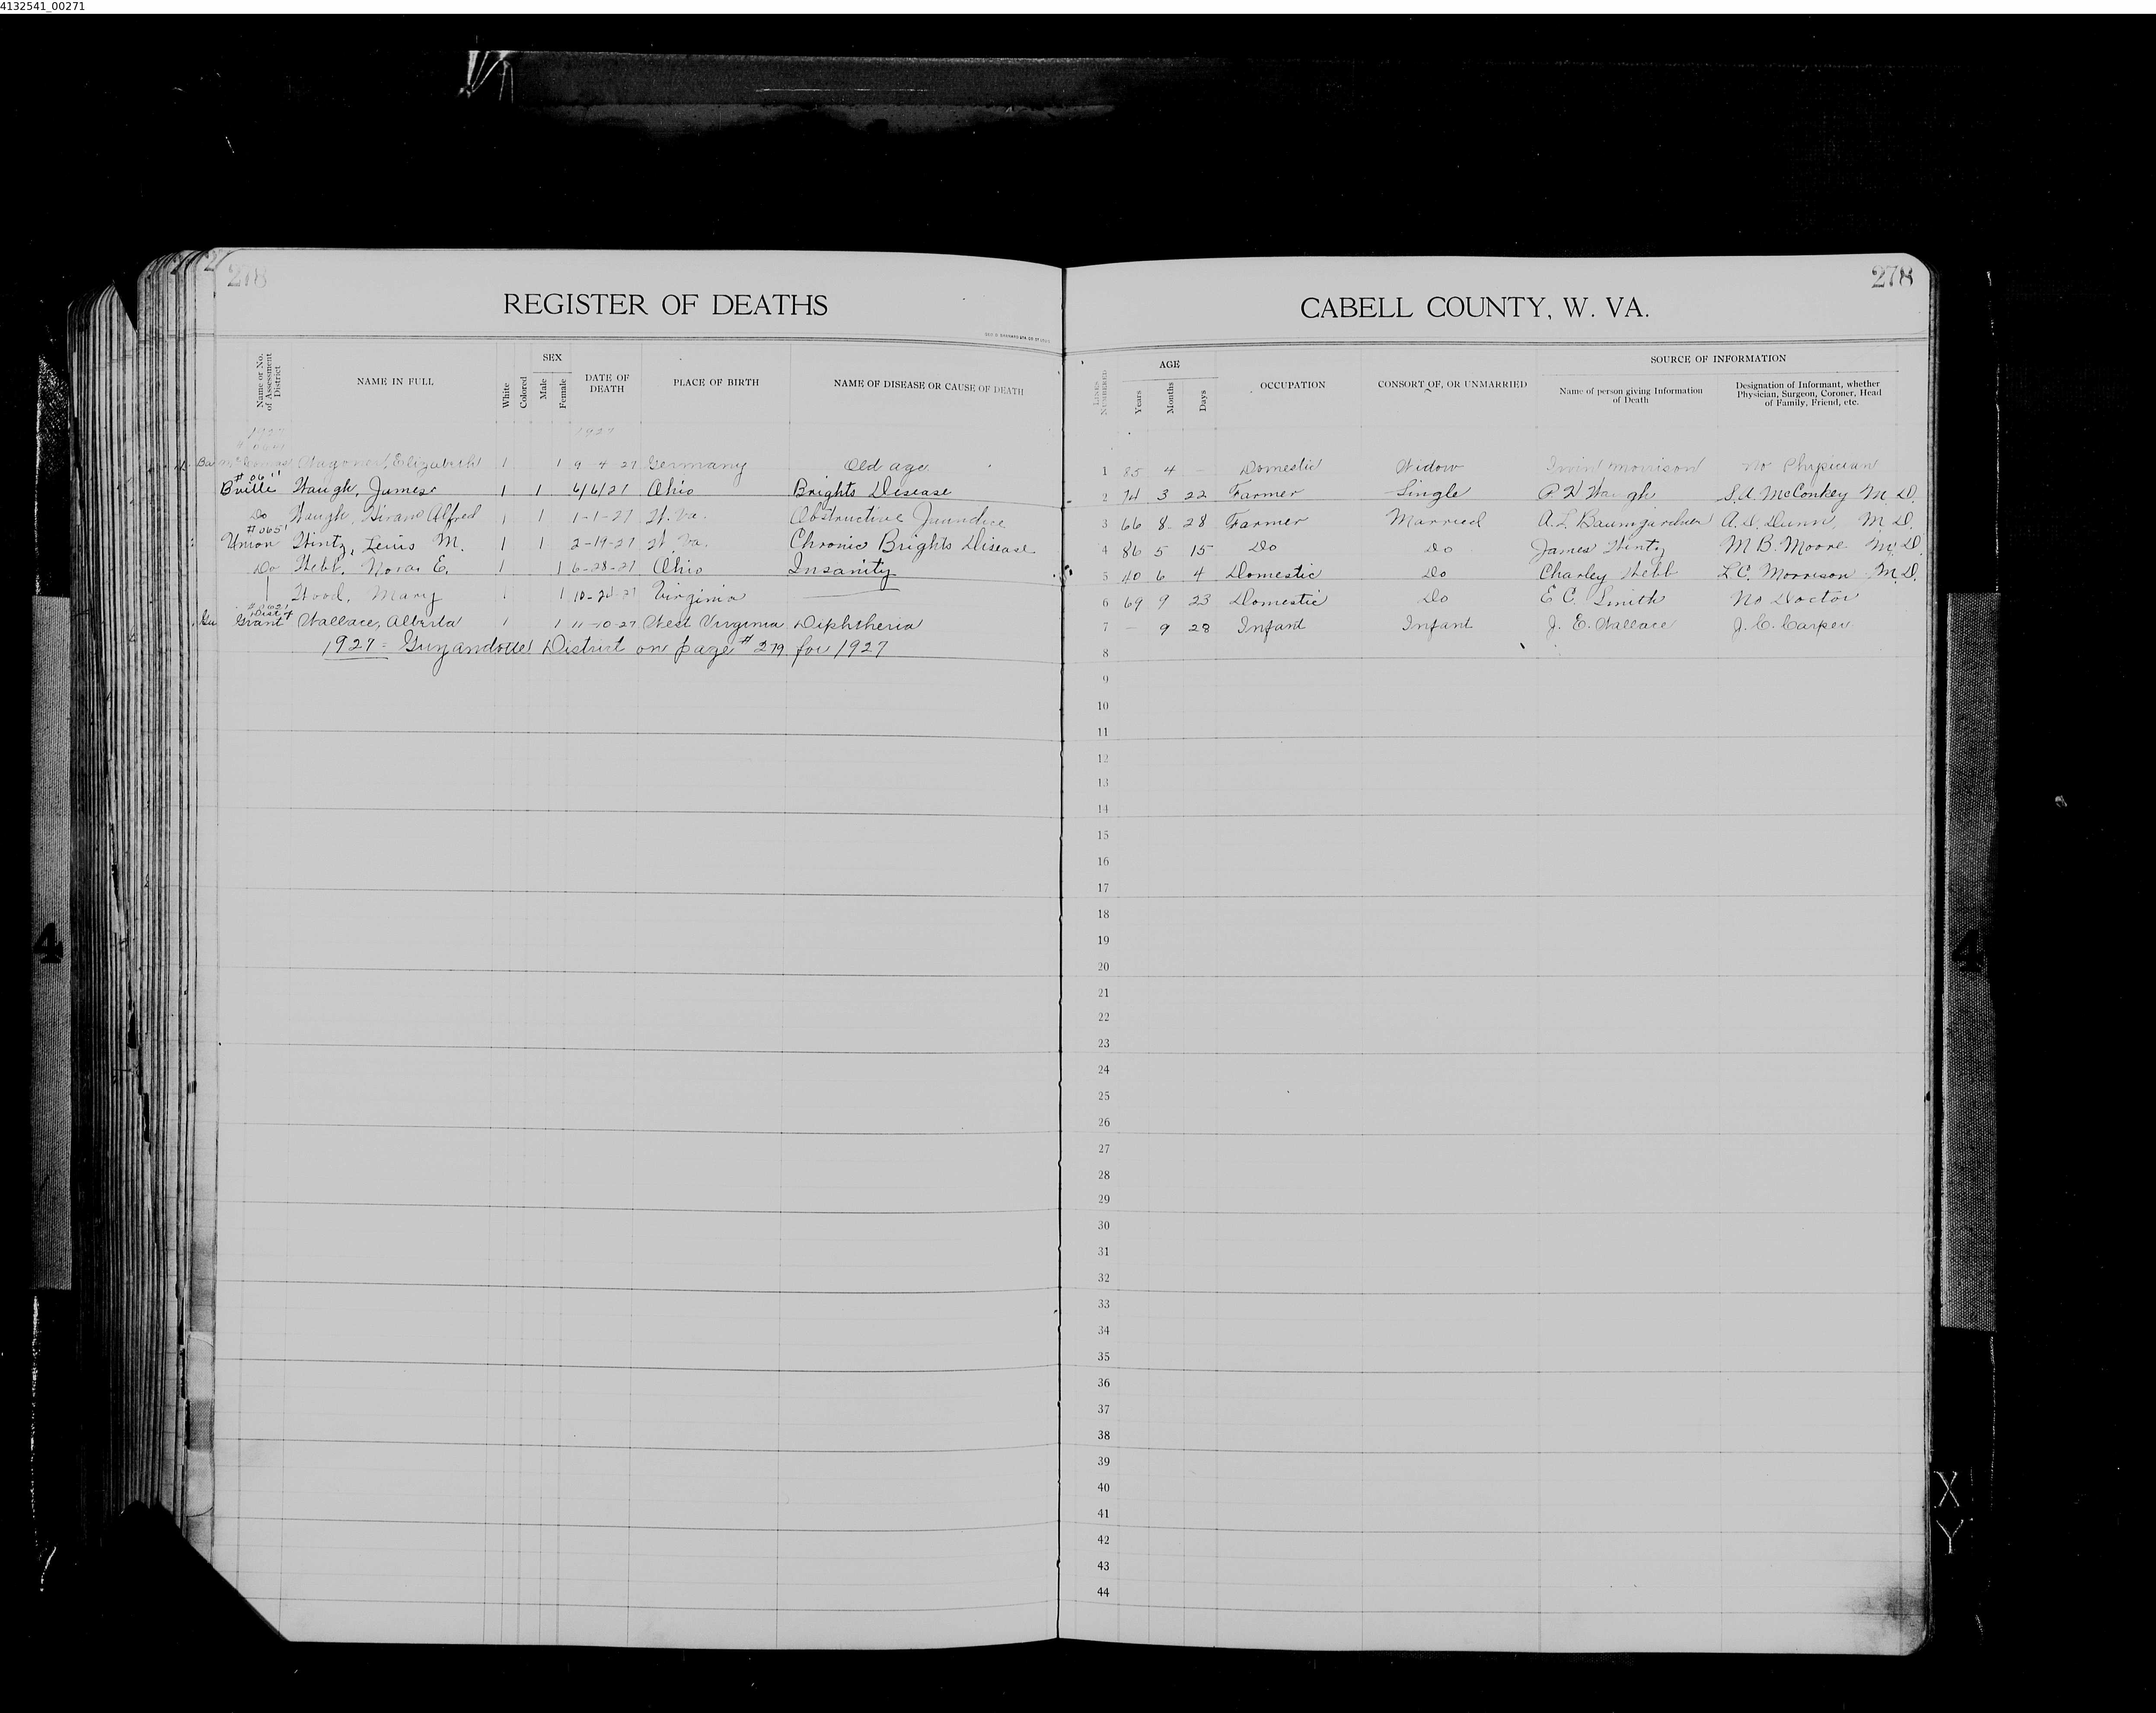 4132541_00271
278
278
REGISTER OF DEATHS
CABELL COUNTY, W. VA.
Name or No. of Assessment District
NAME IN FULL
White
Colored
SEX
Male
Female
DATE OF DEATH
PLACE OF BIRTH
NAME OF DISEASE OR CAUSE OF DEATH
LINES NUMBERED
AGE
Years
Months
Days
OCCUPATION
CONSORT OF, OR UNMARRIED
SOURCE OF INFORMATION
Name of person giving Information of Death
Designation of Informant, whether Physician, Surgeon, Coroner, Head of Family, Friend, etc.
1927
1927
Elizabeth 1 1 9 4 27 Germany Old age 1 85 4 - Domestic Widow Morrison No Physician
Bville Waugh, James 1 1 6/6/27 Ohio Brights Disease 2 74 3 22 Farmer Single Waugh S.A. McConkey M.D.
Do Waugh, Hiram Alfred 1 1 1-1-27 W. Va. Obstructive Jaundice 3 66 8 28 Farmer Married A.L. Baumgardner A.D. Dunn, M.D.
#065
Union Wintz, Lewis M. 1 1 2-19-27 W. Va. Chronic Brights Disease 4 86 5 15 Do Do James Wintz M B. Moore M.D.
Do Webb, Nora E. 1 1 6-28-27 Ohio Insanity 5 40 6 4 Domestic Do Charley Webb L.C. Morrison M.D.
Wood, Mary 1 1 Virginia 6 69 9 23 Domestic Do E C. Smith No Doctor
Dist
Grant Wallace, Alberta 1 1 11-10-27 West Virginia Diphtheria 7 - 9 28 Infant Infant J. E. Wallace J. C. Carper
1927 = Guyandotte District on page #279 for 1927
8
9
10
11
12
13
14
15
16
17
18
19
20
21
22
23
24
25
26
27
28
29
30
31
32
33
34
35
36
37
38
39
40
41
42
43
44
4
4
X
Y